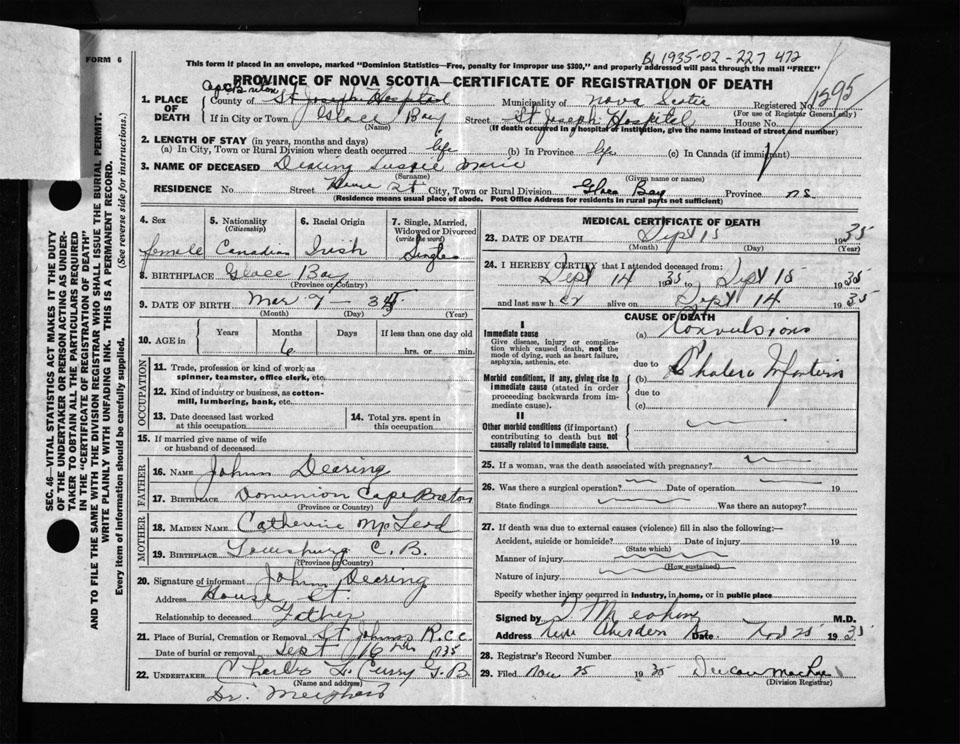 FORM 6
SEC. 46—VITAL STATISTICS ACT MAKES IT THE DUTY
OF THE UNDERTAKER OR PERSON ACTING AS UNDER-
TAKER TO OBTAIN ALL THE PARTICULARS REQUIRED
IN THE "CERTIFICATE OF REGISTRATION OF DEATH"
AND TO FILE THE SAME WITH THE DIVISION REGISTRAR WHO SHALL ISSUE THE BURIAL PERMIT.
WRITE PLAINLY WITH UNFADING INK. THIS IS A PERMANENT RECORD.
Every item of information should be carefully supplied. (See reverse side for instructions.)
1935-02-227 472
This form if placed in an envelope, marked "Dominion Statistics—Free, penalty for improper use $300," and properly addressed will pass through the mail "FREE"
PROVINCE OF NOVA SCOTIA—CERTIFICATE OF REGISTRATION OF DEATH
1. PLACE OF DEATH
Cape Breton
County of St Joseph Hospital Municipality of Nova Scotia Registered No. 1295
(For use of Registrar General only)
If in City or Town Glace Bay Street St Joseph Hospital House No.
(Name) (If death occurred in a hospital or institution, give the name instead of street and number)
2. LENGTH OF STAY (in years, months and days)
(a) In City, Town or Rural Division where death occurred life (b) In Province life (c) In Canada (if immigrant)
3. NAME OF DECEASED Dearing Marie
(Surname) (Given name or names)
RESIDENCE No. Street St City, Town or Rural Division Glace Bay Province N.S.
(Residence means usual place of abode. Post Office Address for residents in rural parts not sufficient)
4. Sex 5. Nationality (Citizenship) 6. Racial Origin 7. Single, Married, Widowed or Divorced (write the word)
female Canadian Irish Single
8. BIRTHPLACE Glace Bay
(Province or Country)
9. DATE OF BIRTH Mar 7 - 35
(Month) (Day) (Year)
10. AGE in Years Months Days If less than one day old
6 hrs. or min.
OCCUPATION
11. Trade, profession or kind of work as
spinner, teamster, office clerk, etc.
12. Kind of industry or business, as cotton-
mill, lumbering, bank, etc.
13. Date deceased last worked at this occupation 14. Total yrs. spent in this occupation
15. If married give name of wife
or husband of deceased
FATHER
16. NAME John Dearing
17. BIRTHPLACE Dominion Cape Breton
(Province or Country)
MOTHER
18. MAIDEN NAME Catherine McLeod
19. BIRTHPLACE Louisburg C.B.
(Province or Country)
20. Signature of informant John Dearing
Address House St.
Relationship to deceased Father
21. Place of Burial, Cremation or Removal St Johns R.C.C.
Date of burial or removal Sept 16 1935
22. UNDERTAKER Charles Curry G.B.
(Name and address)
Dr.
MEDICAL CERTIFICATE OF DEATH
23. DATE OF DEATH Sept 15 1935
(Month) (Day) (Year)
24. I HEREBY CERTIFY that I attended deceased from:
Sept 14 1935 to Sept 15 1935
and last saw her alive on Sept 14 1935
CAUSE OF DEATH
I
Immediate cause
Give disease, injury or complica-
tion which caused death, not the
mode of dying, such as heart failure,
asphyxia, asthenia, etc.
(a) Convulsions
due to
Morbid conditions, if any, giving rise to
immediate cause (stated in order
proceeding backwards from im-
mediate cause).
(b) Cholera Infantum
due to
(c)
II
Other morbid conditions (if important)
contributing to death but not
causally related to immediate cause.
25. If a woman, was the death associated with pregnancy?
26. Was there a surgical operation? Date of operation 19
State findings Was there an autopsy?
27. If death was due to external causes (violence) fill in also the following:—
Accident, suicide or homicide? Date of injury 19
(State which)
Manner of injury
(How sustained)
Nature of injury
Specify whether injury occurred in industry, in home, or in public place
Signed by M.D.
Address New Aberden Date Nov 25 1935
28. Registrar's Record Number
29. Filed Nov 25 1935
(Division Registrar)